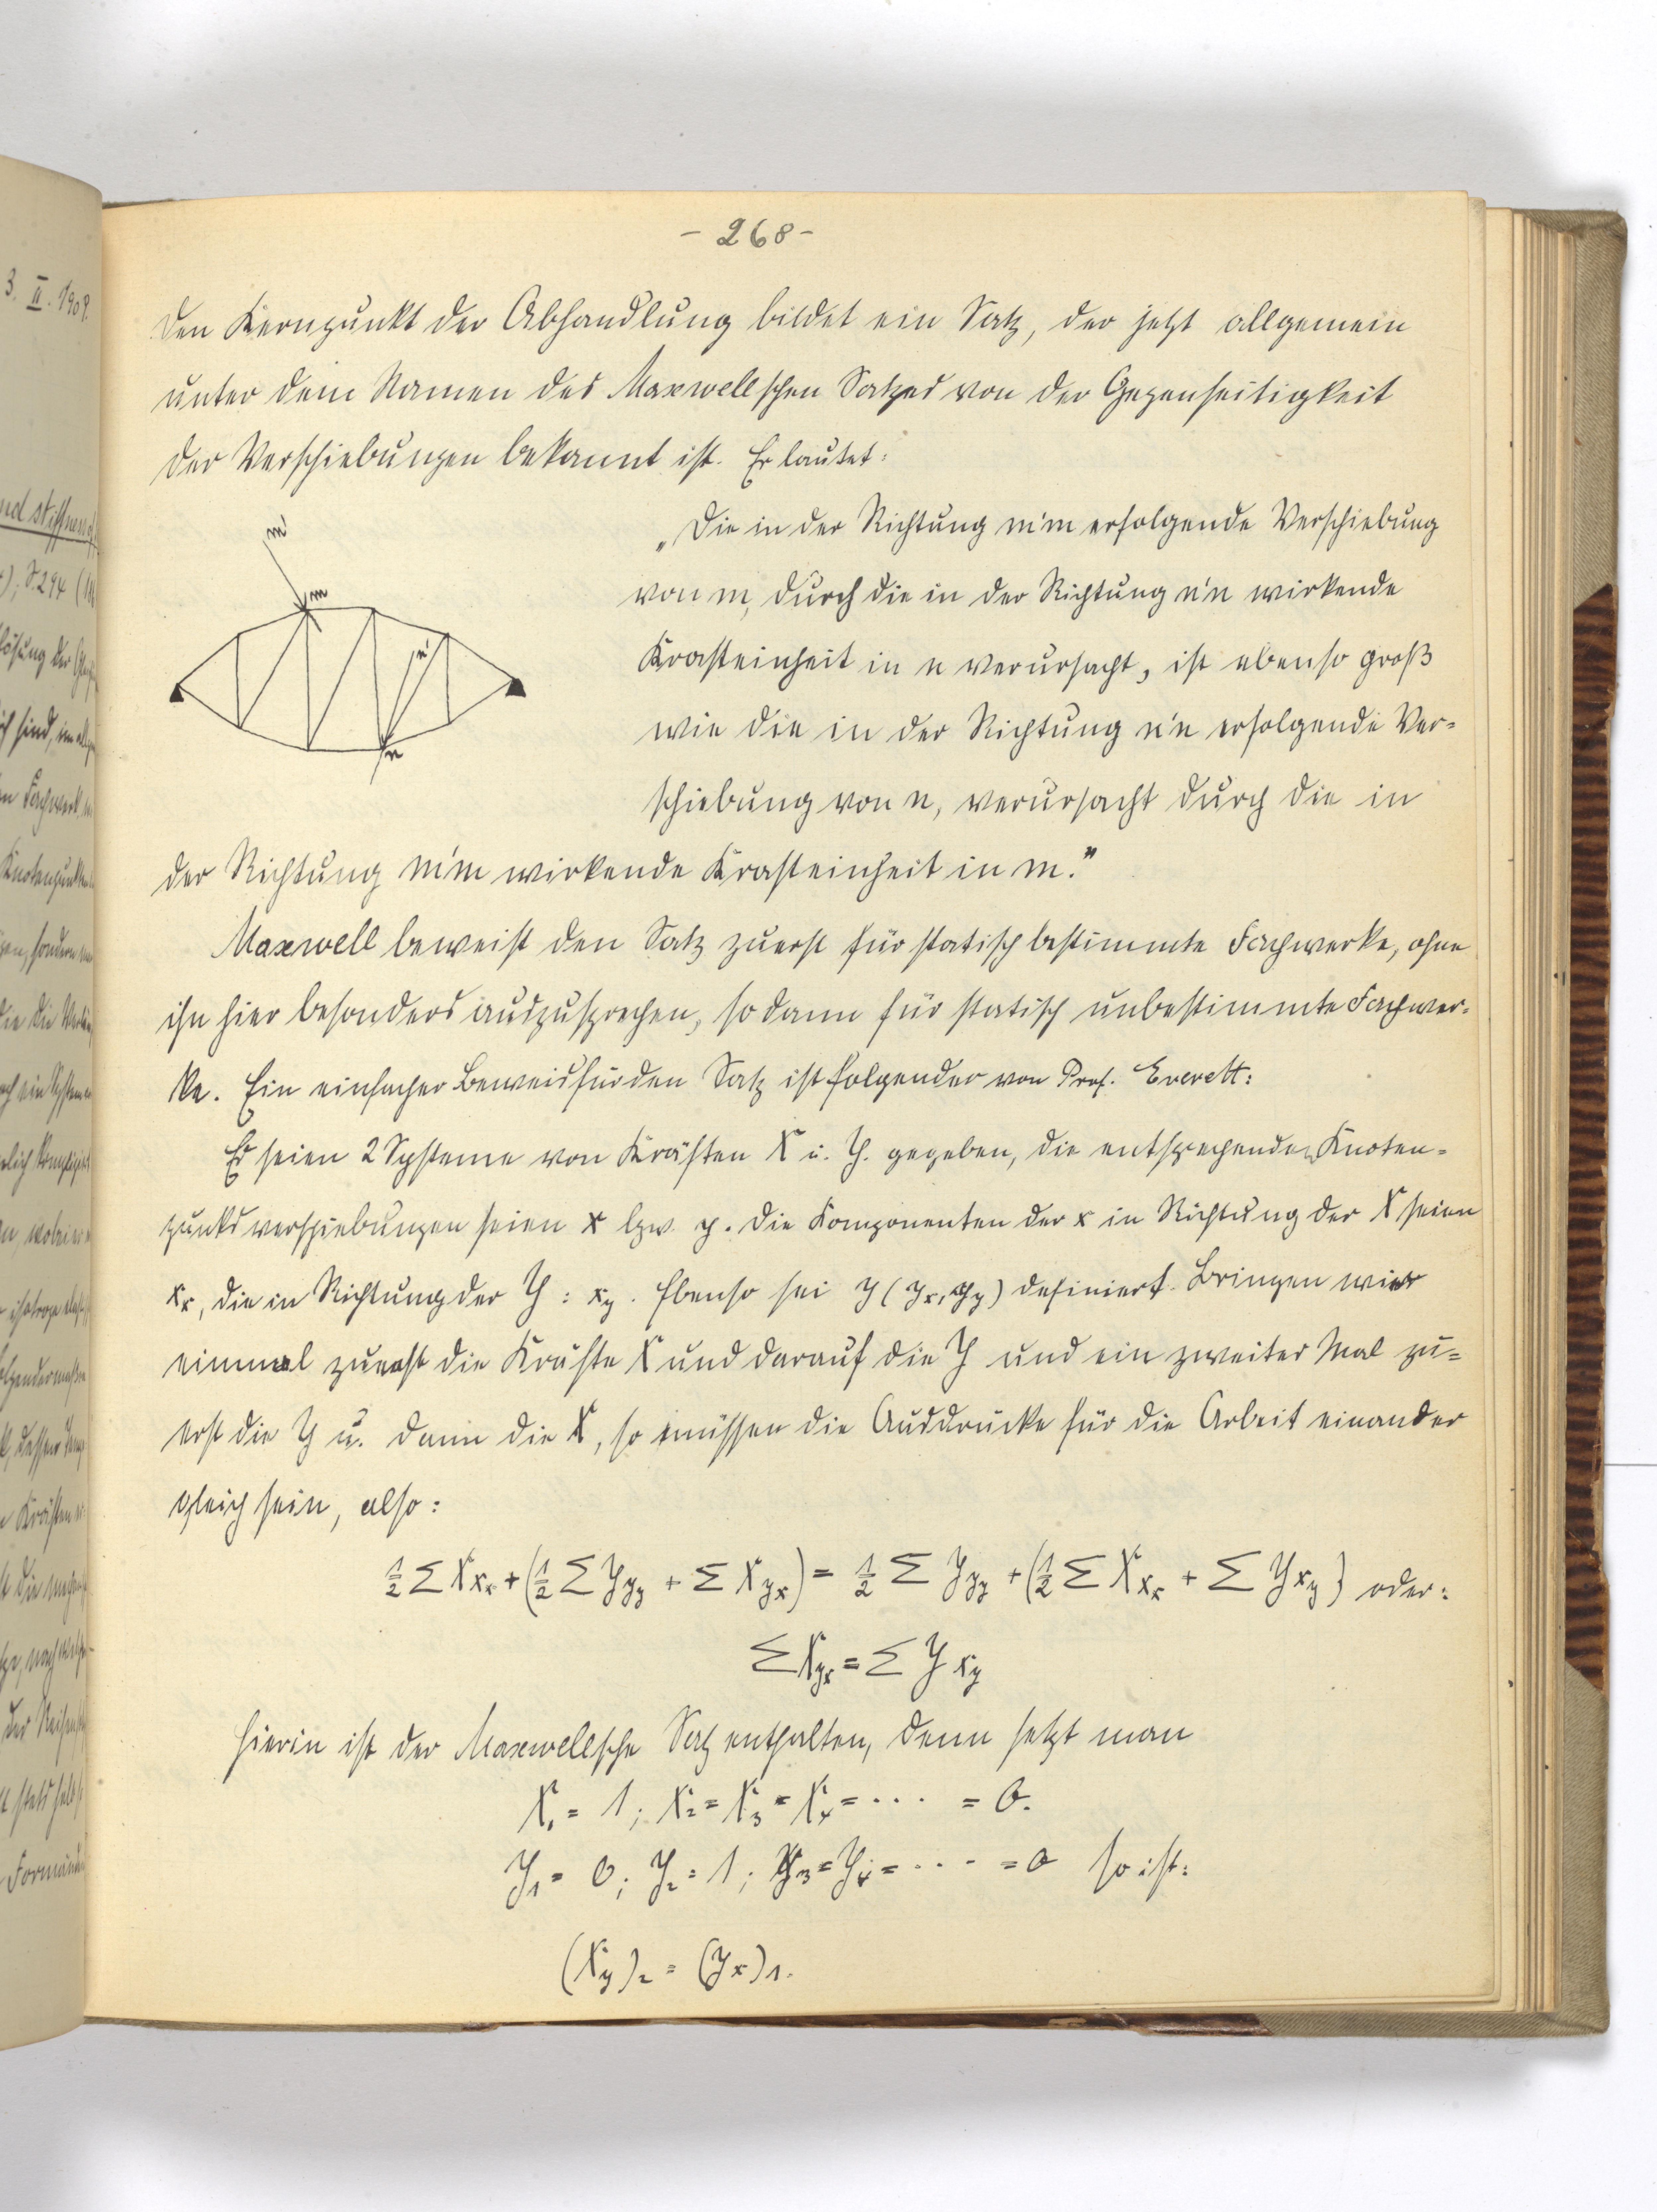 - 268 -
3. II. 1909.
Den Kernpunkt der Abhandlung bildet ein Satz, der jetzt allgemein
unter dem Namen des Maxwellschen Satzes von der Gegenseitigkeit
der Verschiebungen bekannt ist. Er lautet:
m'
m
n'
n
„Die in der Richtung m'm erfolgende Verschiebung
von m, durch die in der Richtung n'n wirkende
Krafteinheit in n verursacht, ist ebenso groß
wie die in der Richtung n'n erfolgende Ver=
schiebung von n, verursacht durch die in
der Richtung m'm wirkende Krafteinheit in m."
Maxwell beweist den Satz zuerst für statisch bestimmte Fachwerke, ohne
ihn hier besonders auszusprechen, sodann für statisch unbestimmte Fachwer=
ke. Ein einfacher Beweis für den Satz ist folgender von Prof. Everett:
Es seien 2 Systeme von Kräften X u. Y. gegeben, die entsprechenden Knoten=
punktsverschiebungen seien x bzw. y. Die Komponenten der x in Richtung der X seien
x_x, die in Richtung der Y : x_y. Ebenso sei y (y_x, y_y) definiert. Bringen wir
einmal zuerst die Kräfte X und darauf die Y und ein zweites Mal zu=
erst die Y u. dann die X, so müssen die Ausdrücke für die Arbeit einander
gleich sein, also:
½ Σ X x_x + (½ Σ Y y_y + Σ X y_x) = ½ Σ Y y_y + (½ Σ X x_x + Σ Y x_y) oder:
Σ X y_x = Σ Y x_y
Hierin ist der Maxwellsche Satz enthalten, denn setzt man
X₁ = 1; X₂ = X₃ = X₄ = ··· = 0.
Y₁ = 0; Y₂ = 1; Y₃ = Y₄ = ··· = 0 so ist:
(x_y)₂ = (y_x)₁.